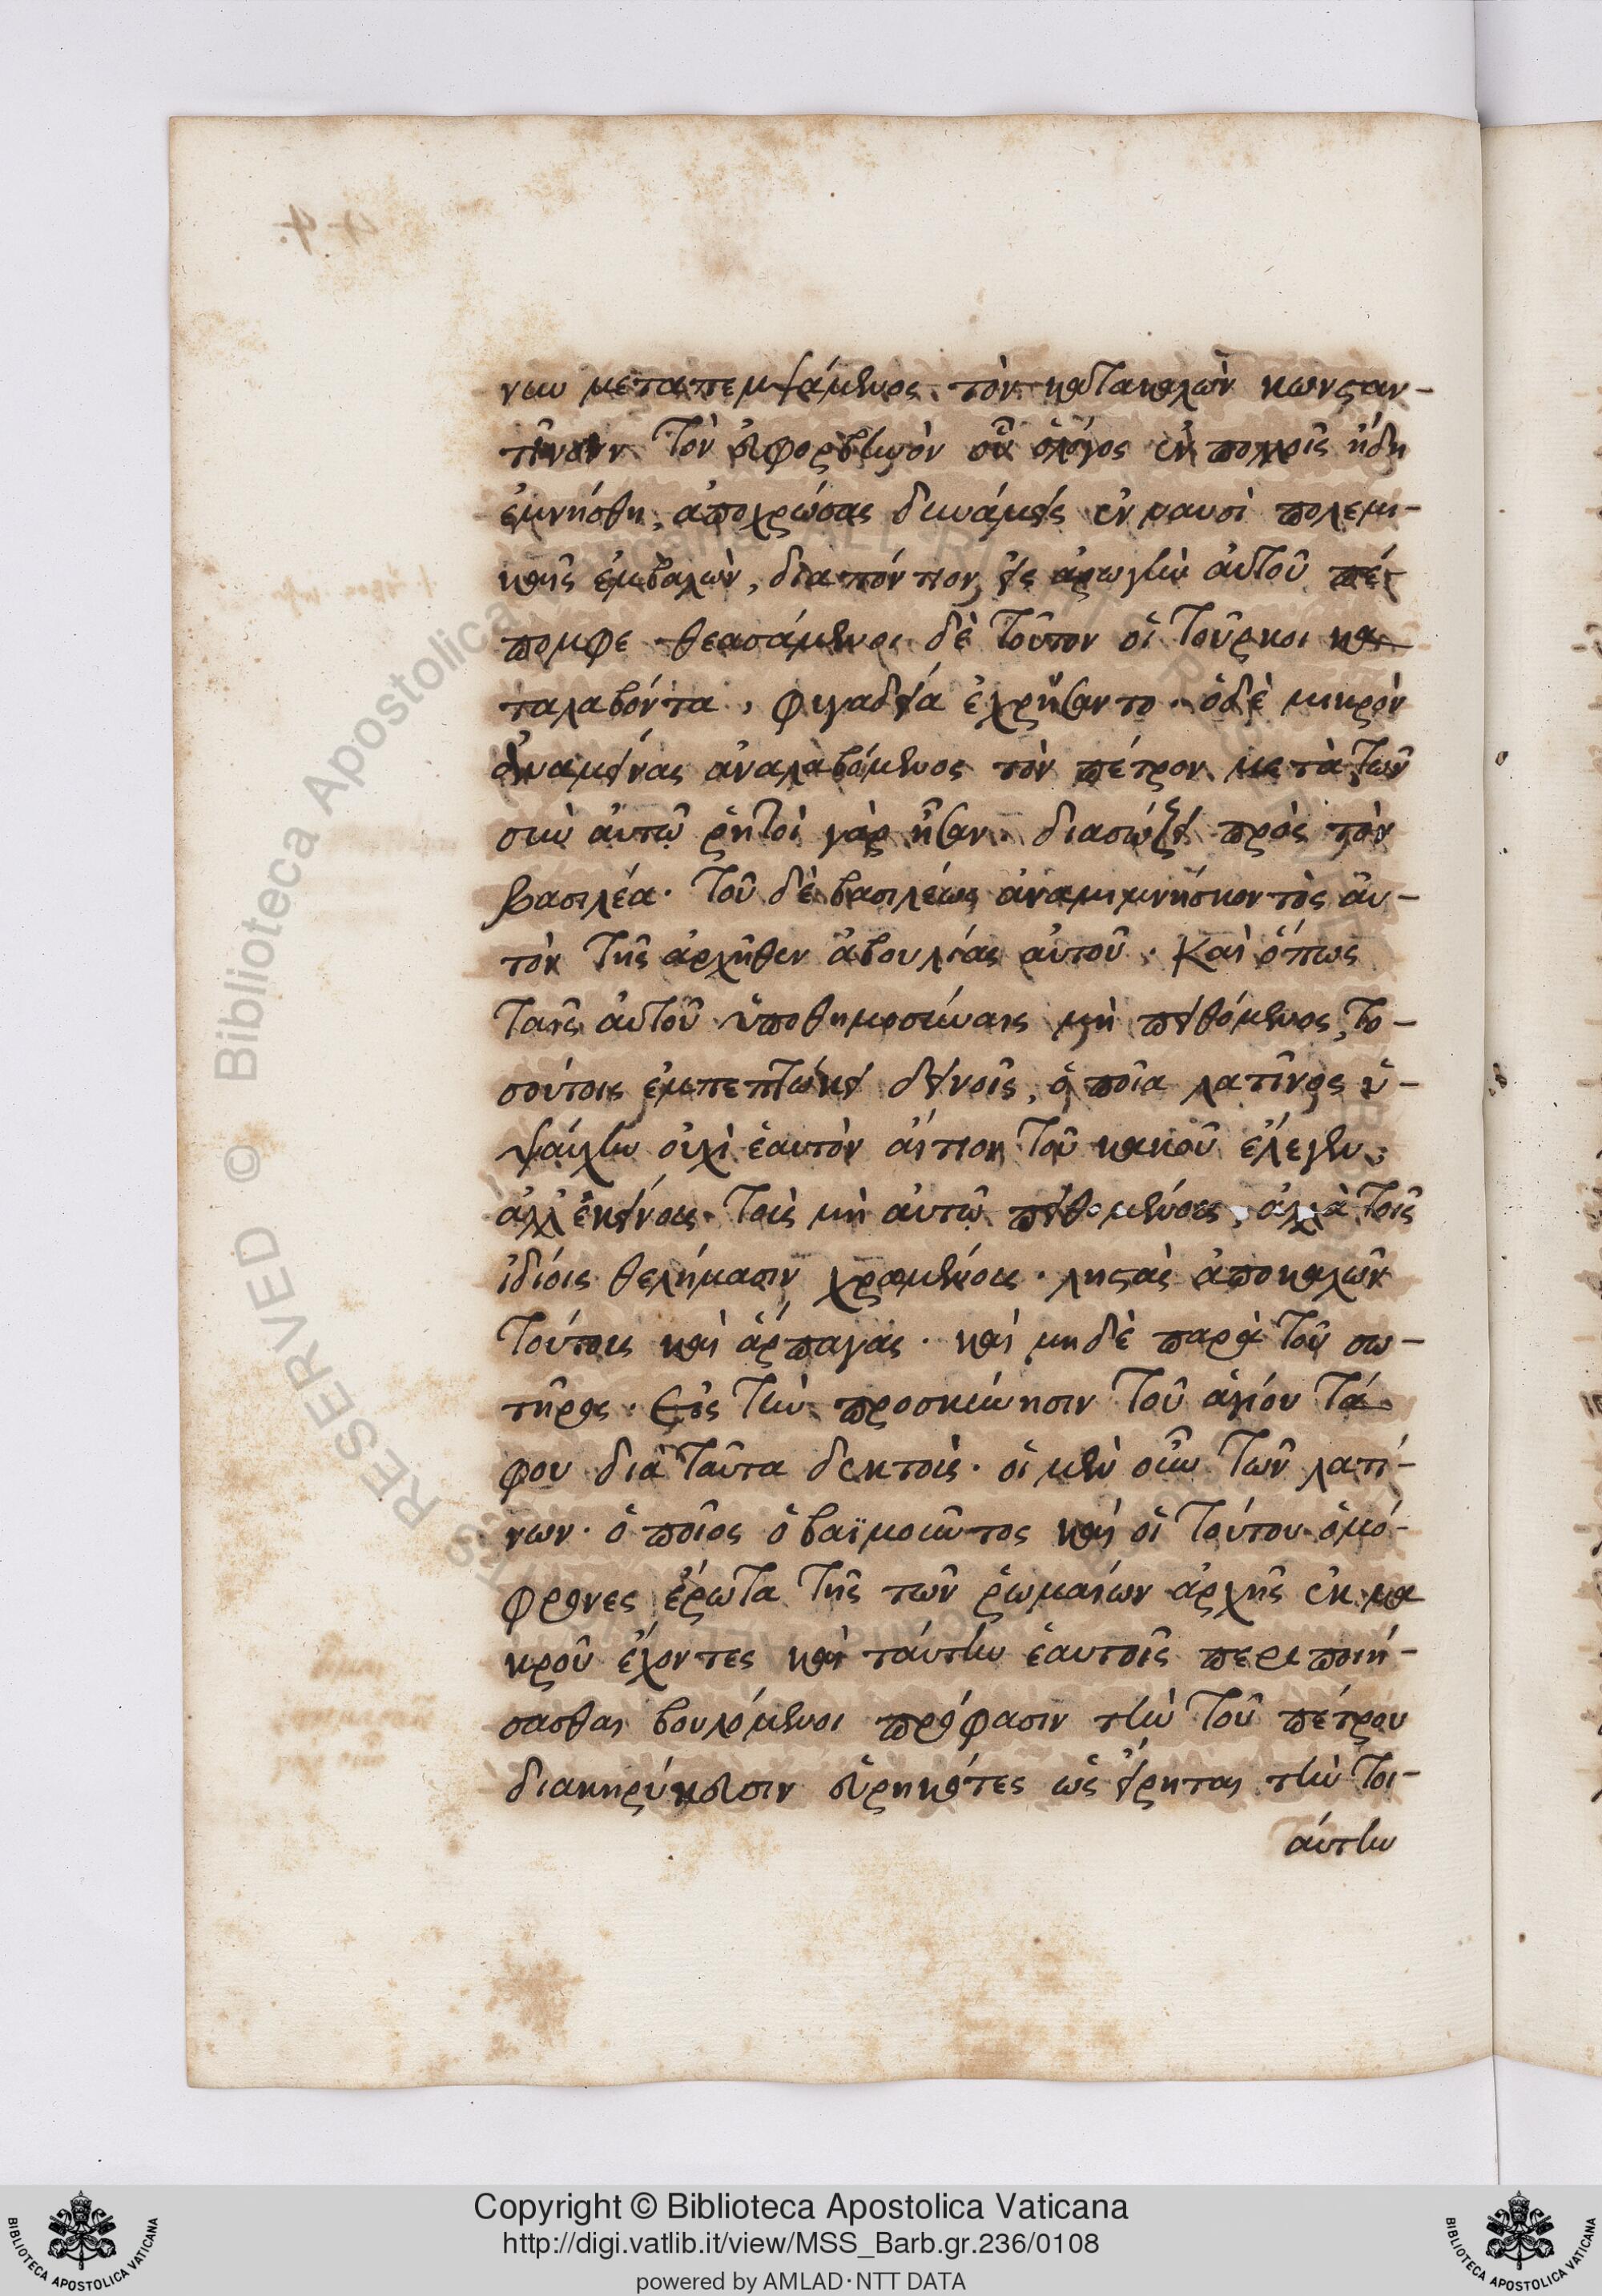 νην μεταπεμψάμενος τὸν κατακαλὼν κωνσταν-
τῖνον τὸν εὐφορβηνὸν οὗ ὁ λόγος ἐν πολλοῖς ἤδη
ἐμνήσθη, ἀποχρώσας δυνάμεις ἐν ναυσὶ πολεμι-
καῖς ἐμβαλὼν, διαπόντιον εἰς ἀρωγὴν αὐτοῦ πέ-
πομφε θεασάμενοι δὲ τοῦτον οἱ τοῦρκοι κα-
ταλαβόντα, φυγαδεία ἐχρήσαντο. ὁ δὲ μικρὸν
ἀναμείνας ἀναλαβόμενος τὸν πέτρον μετὰ τῶν
σὺν αὐτῷ ῥητοὶ γὰρ ἦσαν. διασώζει πρὸς τὸν
βασιλέα. τοῦ δὲ βασιλέως ἀναμιμνήσκοντος αὐ-
τὸν τῆς ἀρχῆθεν ἀβουλίας αὐτοῦ. Καὶ ὅπως
ταῖς αὐτοῦ ὑποθημοσύναις μὴ πειθόμενος, το-
σούτοις ἐμπεπτώκει δεινοῖς, ὁποῖα λατῖνος ὑ-
ψαύχην οὐχὶ ἑαυτὸν αἴτιον τοῦ κακοῦ ἔλεγεν,
ἀλλ' ἐκείνους τοὺς μὴ αὐτῷ πειθομένους, ἀλλὰ τοῖς
ἰδίοις θελήμασιν χρωμένους. ληστὰς ἀποκαλῶν
τούτους καὶ ἅρπαγας. καὶ μηδὲ παρὰ τοῦ σω-
τῆρος. Εἰς τὴν προσκύνησιν τοῦ ἁγίου τά
φου διὰ ταῦτα δεκτούς. οἱ μὲν οὖν τῶν λατί-
νων. ὁποῖος ὁ βαϊμοῦντος καὶ οἱ τούτου ὁμό-
φρονες ἔρωτα τῆς τῶν ῥωμαίων ἀρχῆς ἐκ μα
κροῦ ἔχοντες καὶ ταύτην ἑαυτοῖς περιποιή-
σασθαι βουλόμενοι πρόφασιν τὴν τοῦ πέτρου
διακηρύκευσιν εὑρηκότες ὡς εἴρηται τὴν τοι-
αύτην
Copyright © Biblioteca Apostolica Vaticana
http://digi.vatlib.it/view/MSS_Barb.gr.236/0108
powered by AMLAD·NTT DATA